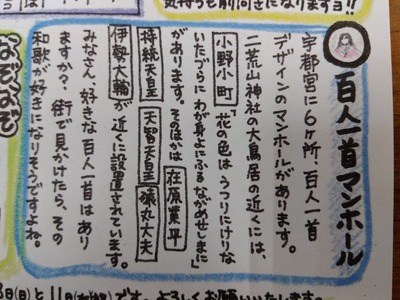 百人一首マンホール
宇都宮に6ヶ所、百人一首
デザインのマンホールがあります。
二荒山神社の大鳥居の近くには、
小野小町「花の色は うつりにけりな
いたづらに わが身よにふる ながめせしまに」
があります。そのほかは 在原業平
持統天皇 天智天皇 猿丸大夫
伊勢大輔が近くに設置されています。
みなさん、好きな百人一首はあり
ますか?街で見かけたら、その
和歌が好きになりそうですよね。
なぞなぞ